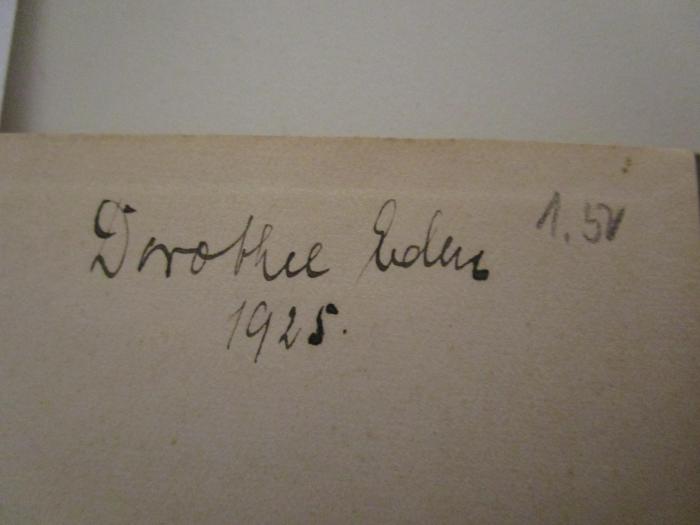 Dorothee Eden
1.50
1925.